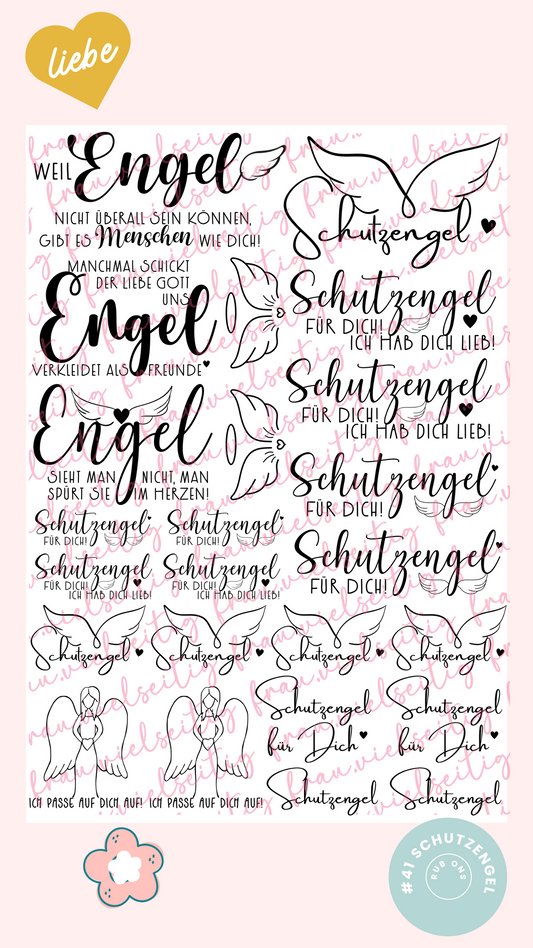 liebe
WEIL Engel
NICHT ÜBERALL SEIN KÖNNEN,
GIBT ES Menschen WIE DICH!
MANCHMAL SCHICKT
DER LIEBE GOTT
UNS
Engel
VERKLEIDET ALS FREUNDE
Engel
SIEHT MAN NICHT, MAN
SPÜRT SIE IM HERZEN!
Schutzengel
Schutzengel
FÜR DICH!
ICH HAB DICH LIEB!
Schutzengel
FÜR DICH!
ICH HAB DICH LIEB!
Schutzengel
FÜR DICH!
Schutzengel
FÜR DICH!
Schutzengel Schutzengel
FÜR DICH! FÜR DICH!
Schutzengel Schutzengel
FÜR DICH! FÜR DICH!
ICH HAB DICH LIEB! ICH HAB DICH LIEB!
Schutzengel Schutzengel Schutzengel Schutzengel
Schutzengel Schutzengel
für Dich für Dich
ICH PASSE AUF DICH AUF! ICH PASSE AUF DICH AUF! Schutzengel Schutzengel
frau.vielseitig
#41 SCHUTZENGEL
RUB ONS